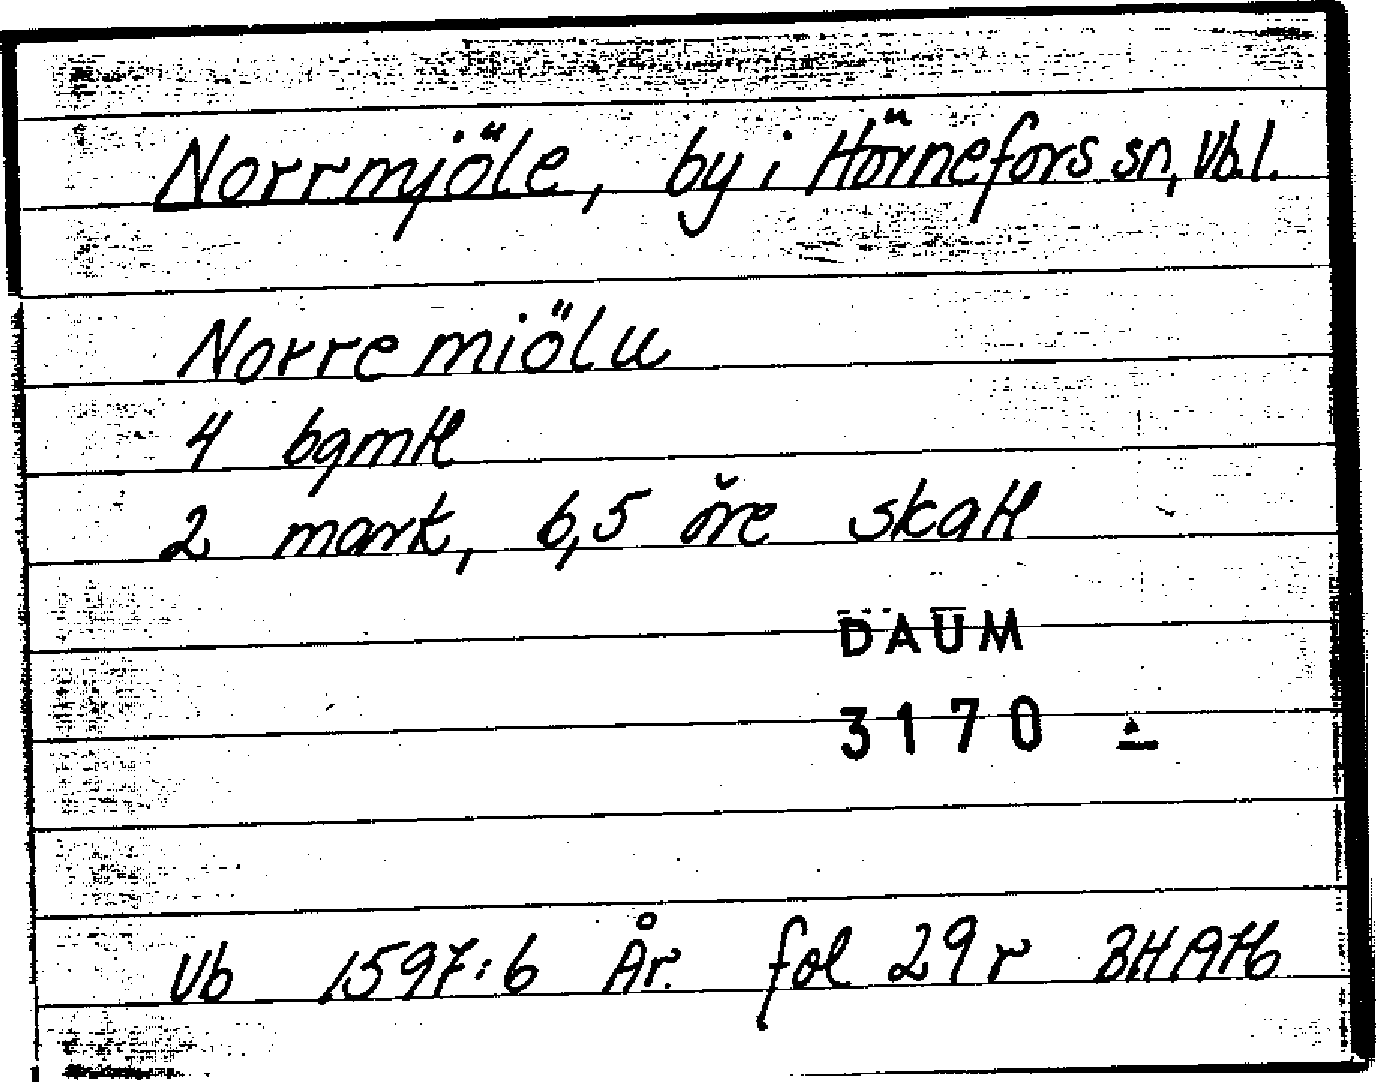 Norrmjöle, by i Hörnefors sn, Vb.l.
Norre miölu
4 bgmtl
2 mark, 6,5 öre skatt
DAUM
3170
Vb 1597:6 År. fol 29r BHA76